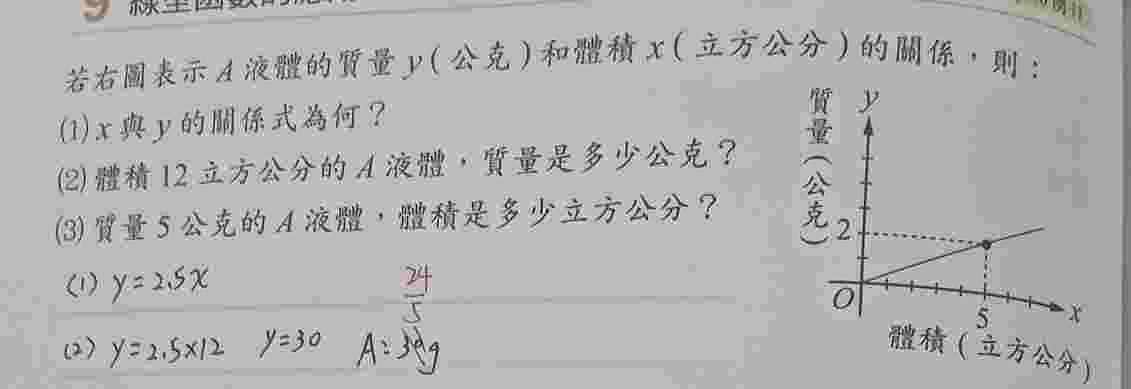 9
若右圖表示 A 液體的質量 y ( 公克 ) 和體積 x ( 立方公分 ) 的關係，則：
(1) x 與 y 的關係式為何？
(2) 體積 12 立方公分的 A 液體，質量是多少公克？
(3) 質量 5 公克的 A 液體，體積是多少立方公分？
(1) y=2.5x
24/5
(2) y=2.5×12 y=30 A: 30g
質量(公克)
y
2
O
5
x
體積 ( 立方公分 )